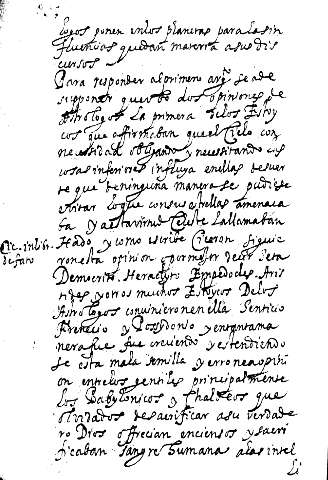 logos ponen en los planetas para las in
fluencias quedan materia a sus dis
cursos
Para responder al primero arg.º se a de
suponer que ubo dos opiniones de
Astrologos La primera de los Estoy
cos que affirmaban que el Cielo con
necessidad obligando y necessitando las
cosas inferiores influya en ellas de suer
te que de ninguna manera se pudiese
evitar lo que con sus estrellas amenaca
ba y a esta virtud Celeste la llamaban
Cic. in lib.
de fato
Hado y como escribe Ciceron siguie
ron esta opinion o por mejor decir seta
Democrito Heraclyto Empedocles Aris
tides y otros muchos Estoycos De los
Astrologos convinieron en ella
y Possydonio y en tanta ma
nera fue creciendo y estendiendo
se esta mala semilla y erronea opini
on entre los gentiles principalmente
los Babylonicos y Chaldeos que
olvidados de sacrificar a su verdade
ro Dios offrecian enciensos y sacri
ficaban sangre humana a las intel
li